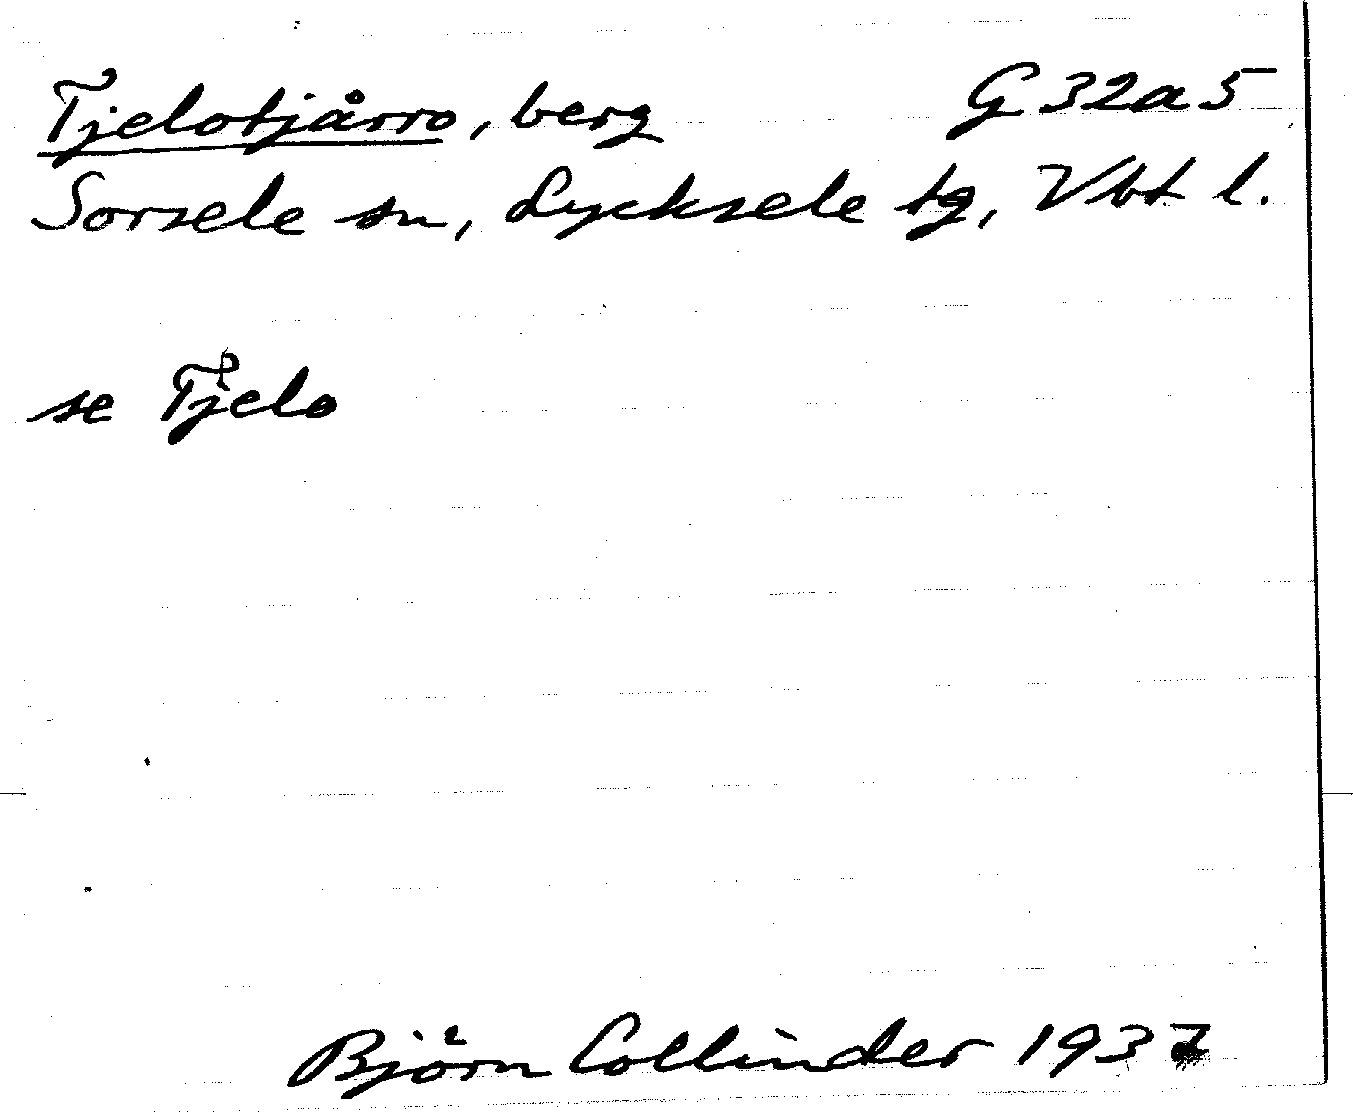 Tjelotjårro, berg G 32a5
Sorsele sn, Lycksele tg, Vbt l.
se Tjelo
Björn Collinder 1937